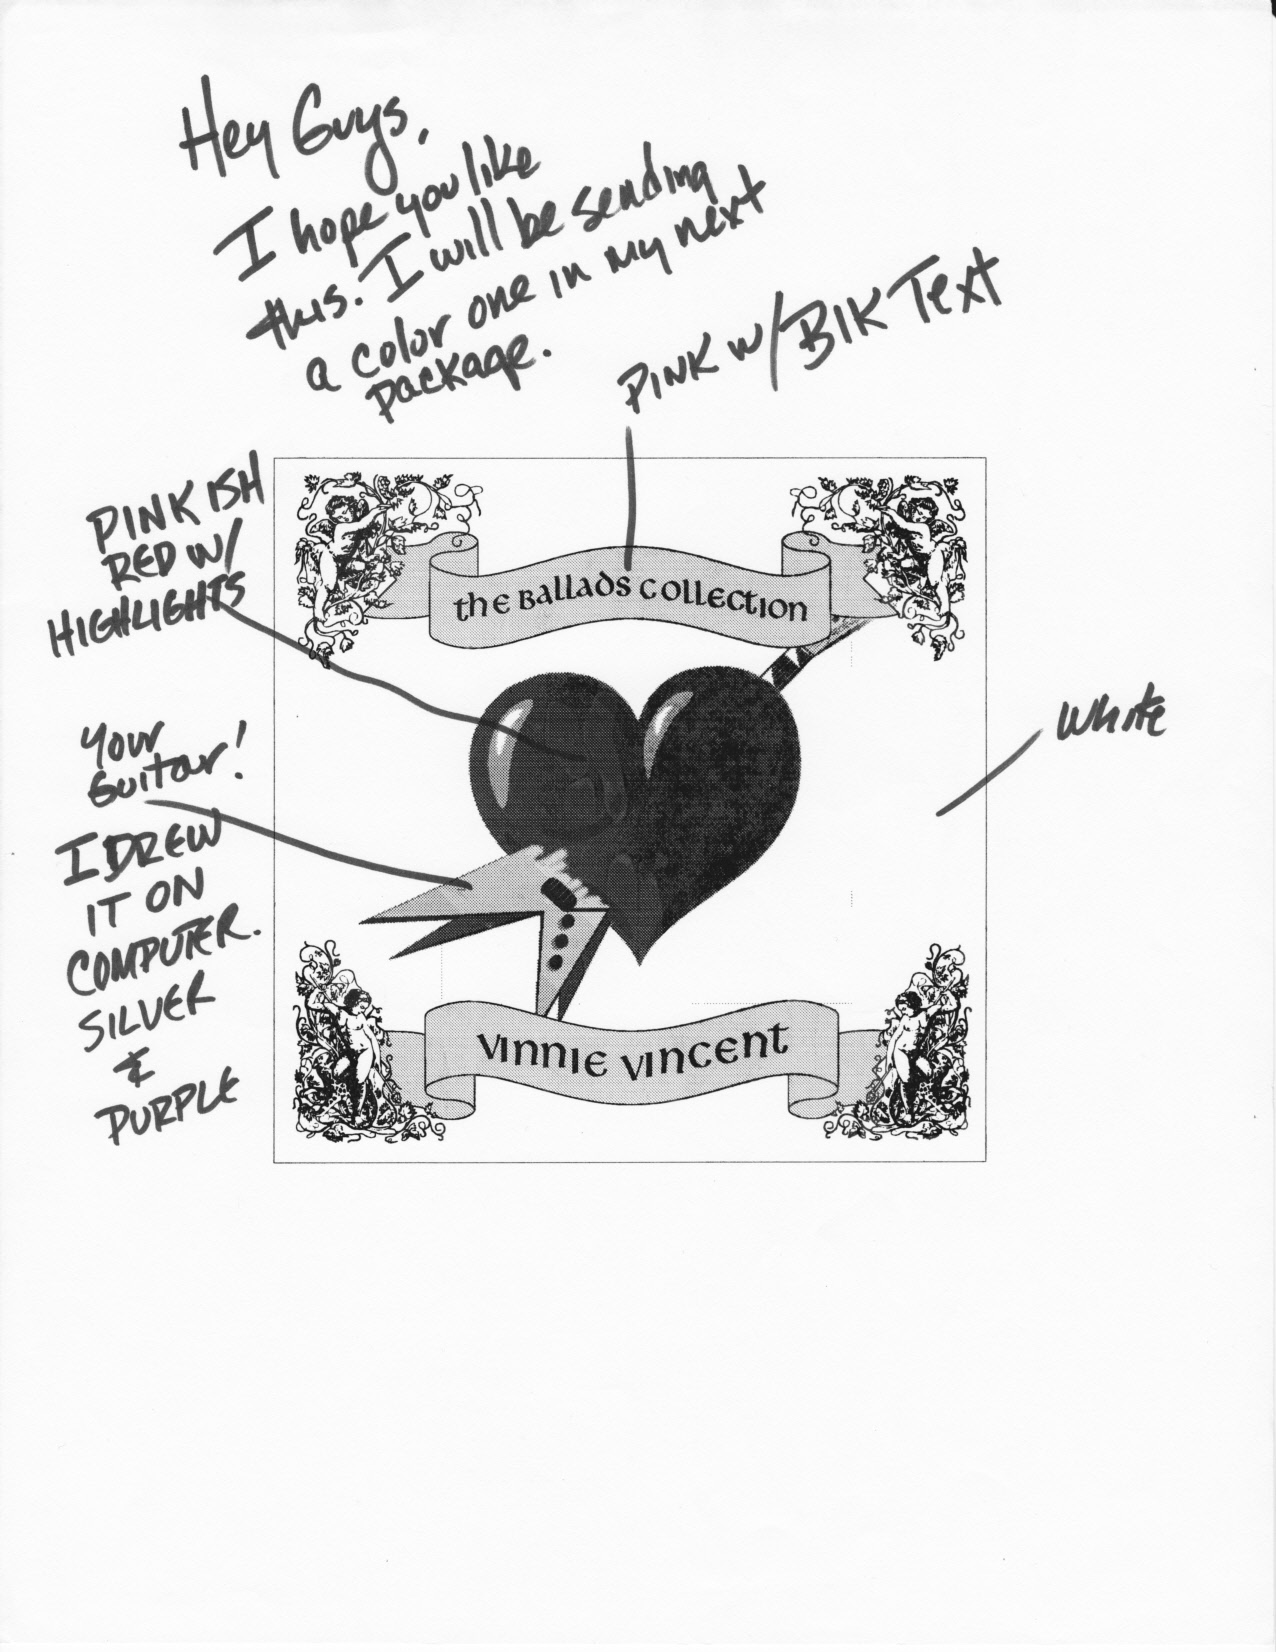 Hey Guys,
I hope you like
this. I will be sending
a color one in my next
package.
PINK w/ Blk Text
PINK ISH
RED W/
HIGHLIGHTS
the Ballads Collection
White
Your
Guitar!
I DREW
IT ON
COMPUTER.
SILVER
&
PURPLE
VINNIE VINCENT